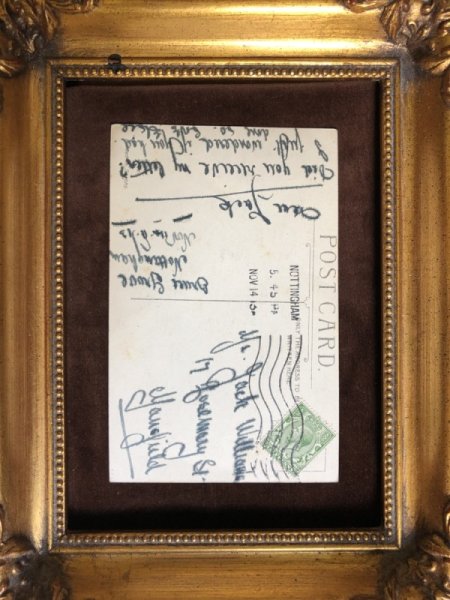 POST CARD.
NOTTINGHAM
5. 45 PM
NOV 14
Bruce Grove
Nottingham
Nov
Dear Jack
Did you receive my letter?
I just wondered if you had
done so.
Mr. Jack Williams
19 Rosemary St.
Mansfield